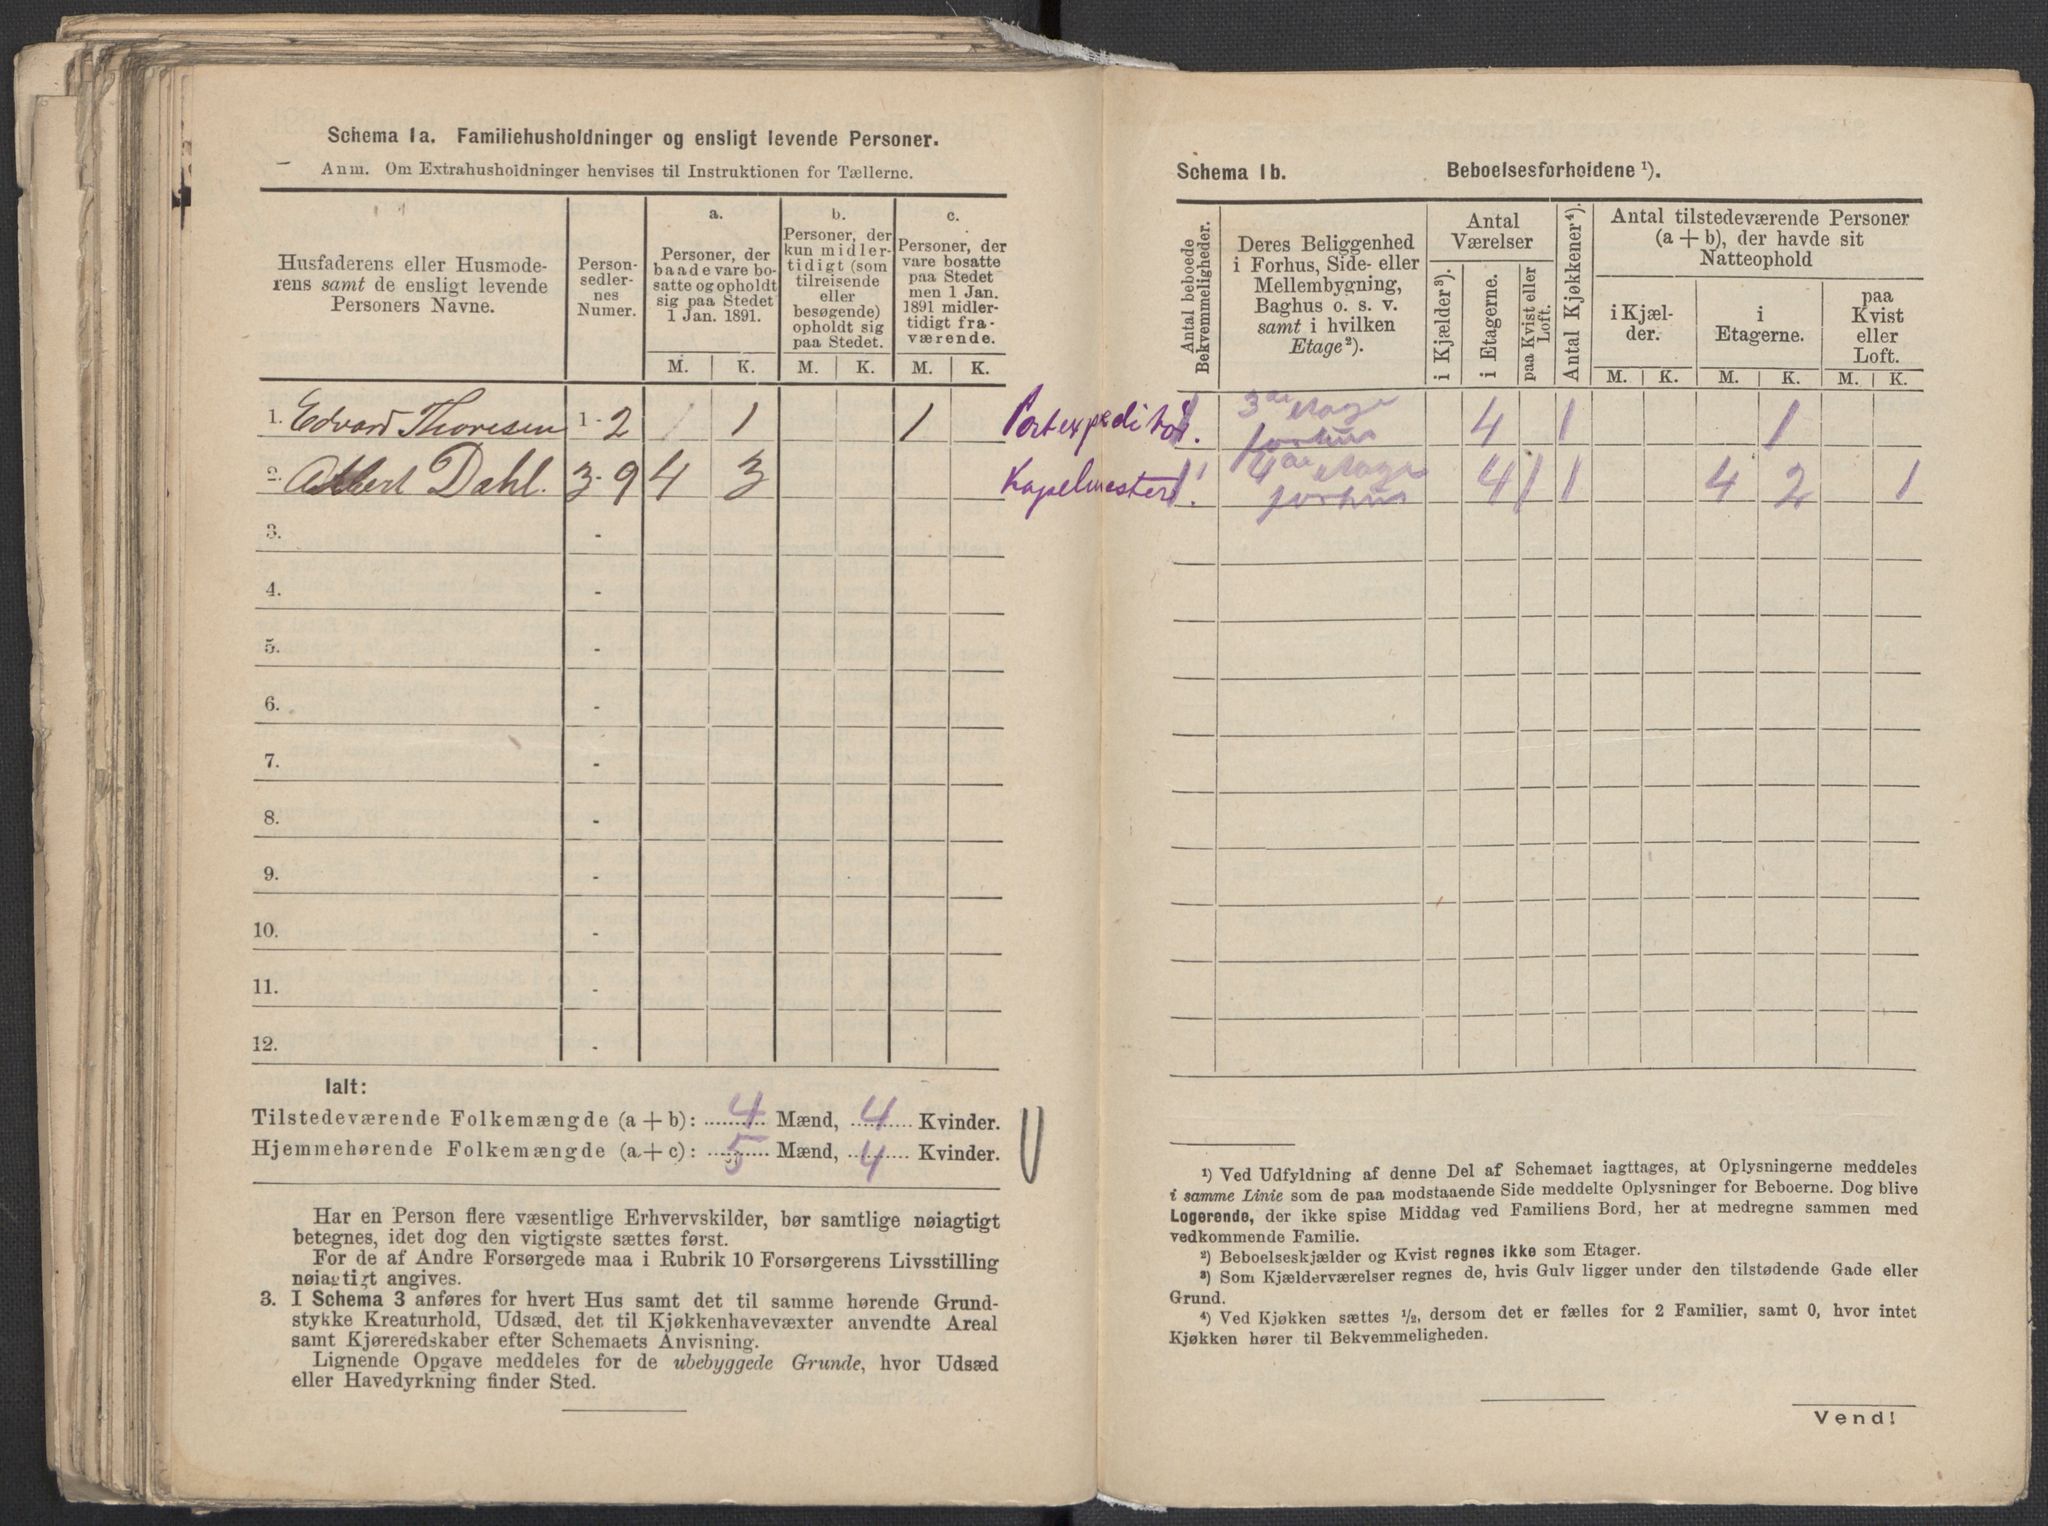 Schema 1a. Familiehusholdninger og ensligt levende Personer.
Anm. Om Extrahusholdninger henvises til Instruktionen for Tællerne.
Husfaderens eller Husmode-
rens samt de ensligt levende
Personers Navne.
Person-
sedler-
nes
Numer.
a.
Personer, der
baade vare bo-
satte og opholdt
sig paa Stedet
1 Jan. 1891.
b.
Personer, der
kun midler-
tidigt (som
tilreisende
eller
besøgende)
opholdt sig
paa Stedet.
c.
Personer, der
vare bosatte
paa Stedet
men 1 Jan.
1891 midler-
tidigt fra-
værende.
M. K. M. K. M. K.
1. Edvard Thoresen 1-2 1 1 Postexpeditør.
2. Albert Dahl. 3-9 4 3 Kapelmester
3. -
4. -
5. -
6. -
7. -
8. -
9. -
10. -
11. -
12. -
Ialt:
Tilstedeværende Folkemængde (a+b): 4 Mænd, 4 Kvinder.
Hjemmehørende Folkemængde (a+c): 5 Mænd, 4 Kvinder.
Har en Person flere væsentlige Erhvervskilder, bør samtlige nøiagtigt
betegnes, idet dog den vigtigste sættes først.
For de af Andre Forsørgede maa i Rubrik 10 Forsørgerens Livsstilling
nøiagtigt angives.
3. I Schema 3 anføres for hvert Hus samt det til samme hørende Grund-
stykke Kreaturhold, Udsæd, det til Kjøkkenhavevæxter anvendte Areal
samt Kjøreredskaber efter Schemaets Anvisning.
Lignende Opgave meddeles for de ubebyggede Grunde, hvor Udsæd
eller Havedyrkning finder Sted.
Schema 1b. Beboelsesforholdene ¹).
Antal beboede
Bekvemmeligheder.
Deres Beliggenhed
i Forhus, Side- eller
Mellembygning,
Baghus o. s. v.
samt i hvilken
Etage²).
Antal
Værelser
i Kjælder³).
i Etagerne.
paa Kvist eller
Loft.
Antal Kjøkkener⁴).
Antal tilstedeværende Personer
(a + b), der havde sit
Natteophold
i Kjæl-
der.
i
Etagerne.
paa
Kvist
eller
Loft.
M. K. M. K. M. K.
1 3die etage
forhus 4 1 1
1 4de etage
forhus 4 1 1 4 2 1
¹) Ved Udfyldning af denne Del af Schemaet iagttages, at Oplysningerne meddeles
i samme Linie som de paa modstaaende Side meddelte Oplysninger for Beboerne. Dog blive
Logerende, der ikke spise Middag ved Familiens Bord, her at medregne sammen med
vedkommende Familie.
²) Beboelseskjælder og Kvist regnes ikke som Etager.
³) Som Kjælderværelser regnes de, hvis Gulv ligger under den tilstødende Gade eller
Grund.
⁴) Ved Kjøkken sættes ½, dersom det er fælles for 2 Familier, samt 0, hvor intet
Kjøkken hører til Bekvemmeligheden.
Vend!